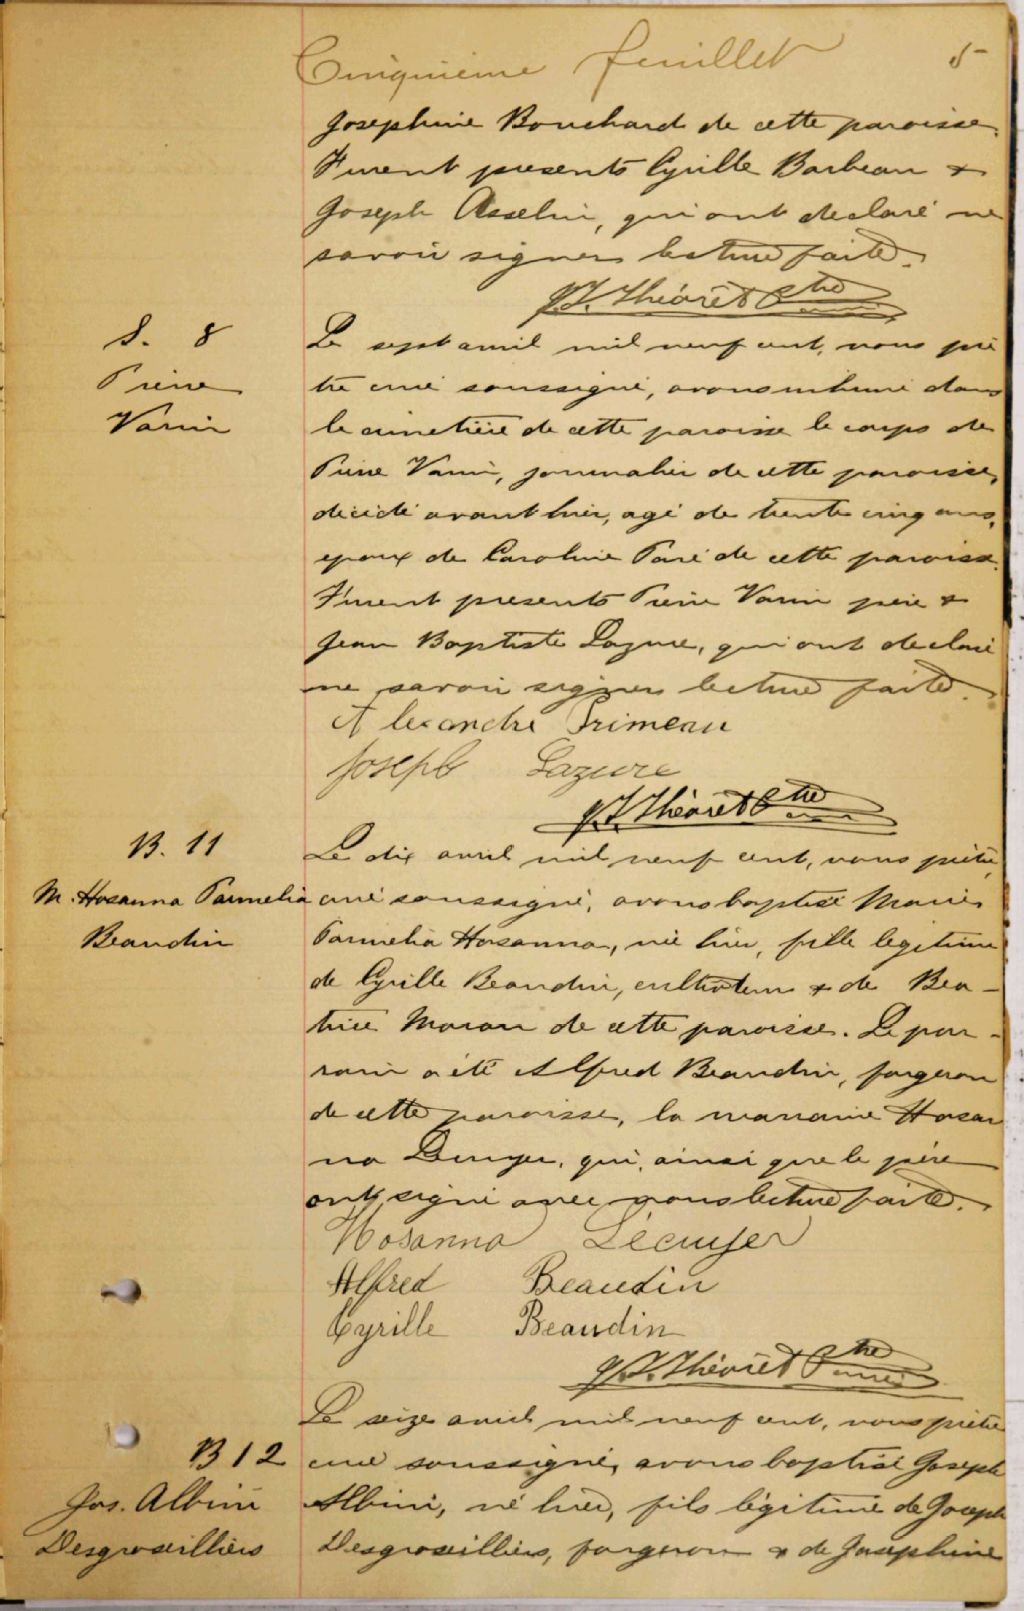 Cinquieme feuillet 5
Josephine Bouchard de cette paroisse.
Furent presents Cyrille Barbeau &
Joseph Asselin, qui ont declaré ne
savoir signer lecture faite.
J. Théorêt Ptre
S. 8
Pierre
Vanin
Le sept avril mil neuf cent, nous prê
tre curé soussigné, avons inhumé dans
le cimetière de cette paroisse le corps de
Pierre Vanin, journalier de cette paroisse,
décédé avant hier, agé de trente cinq ans,
epoux de Caroline Paré de cette paroisse.
Furent presents Pierre Vanin père &
Jean Baptiste Lazure, qui ont declaré
ne savoir signer lecture faite.
Alexandre Primeau
Joseph Lazure
J. Théorêt Ptre
B. 11
M. Hosanna Parmelia
Beaudin
Le dix avril mil neuf cent, nous prêtre,
curé soussigné, avons baptisé Marie
Parmelia Hosanna, née hier, fille legitime
de Cyrille Beaudin, cultivateur & de Bea-
trice Moran de cette paroisse. Le par-
rain a été Alfred Beaudin, forgeron
de cette paroisse, la marraine Hosan
na Lecuyer, qui, ainsi que le père
ont signé avec nous lecture faite.
Hosanna Lécuyer
Alfred Beaudin
Cyrille Beaudin
J. Théorêt Ptre curé
B 12
Jos. Albini
Desgroseilliers
Le seize avril mil neuf cent, nous prêtre
curé soussigné, avons baptisé Joseph
Albini, né hier, fils légitime de Joseph
Desgroseilliers, forgeron & de Josephine